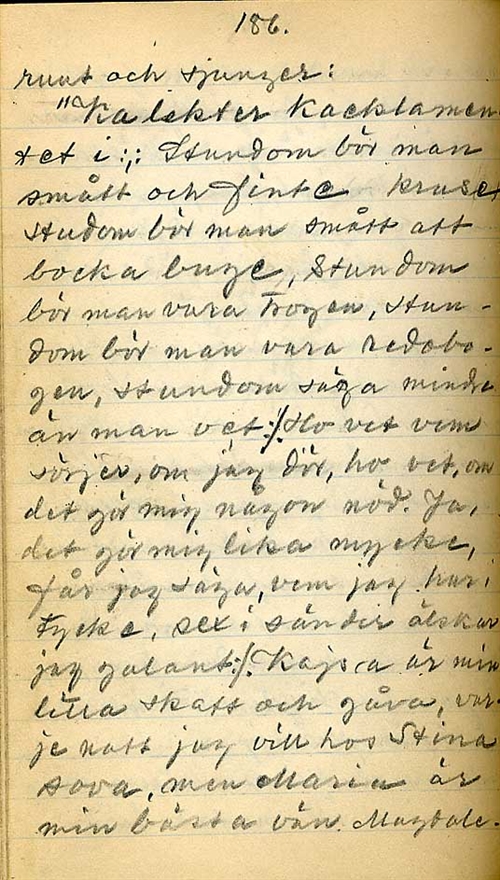 186.
runt och sjunger:
"Ka lekter Kacklamen-
tet i :,: Stundom bör man
smått och finte kruse,
studom bör man smått att
bocka buge, Stundom
bör man vara trogen, stun-
dom bör man vara redobo-
gen, stundom säga mindre
än man vet :/: Ho vet vem
sörjer, om jag dör, ho vet, om
det gör mig någon nöd. Ja,
det gör mig lika mycke,
får jag säga, vem jag har i
tycke, sex i sänder älskar
jag galant :/: Kajsa är min
lilla skatt och gåva, var-
je natt jag vill hos Stina
sova, men Maria är
min bästa vän. Magdale-